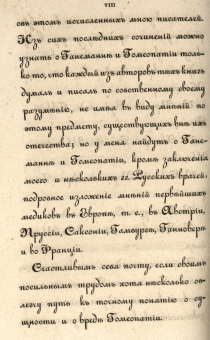 VIII
овъ этомъ исчисленныхъ мною писателей.
Изъ сихъ послѣднихъ сочиненій можно
узнать о Ганеманнѣ и Гомеопатіи толь-
ко то, что каждый изъ авторовъ тѣхъ книгъ
думалъ и писалъ по собственному своему
разумѣнію, не имѣя въ виду мнѣній по
этому предмету, существующихъ внѣ ихъ
отечества; но у меня найдутъ о Гане-
маннѣ и Гомеопатіи, кромѣ заключенія
моего и нѣсколькихъ гг. Русскихъ врачей,
подробное изложеніе мнѣній первѣйшихъ
медиковъ въ Европѣ, т. е., въ Австріи,
Пруссіи, Саксоніи, Гамбургѣ, Ганноверѣ
и во Франціи.
Счастливымъ себя почту, если своимъ
посильнымъ трудомъ хотя нѣсколько об-
легчу путь къ точному понятію о су-
щности и о вредѣ Гомеопатіи.